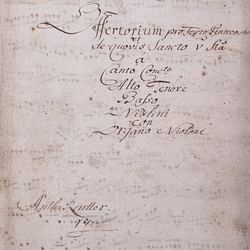 Offertorium pro Festo Pentecostes
et
de quovis Sancto v Sta
a
Canto Conc:to
Alto Tenore
Basso
2 Violini
con
Organo e Violone
Reutter